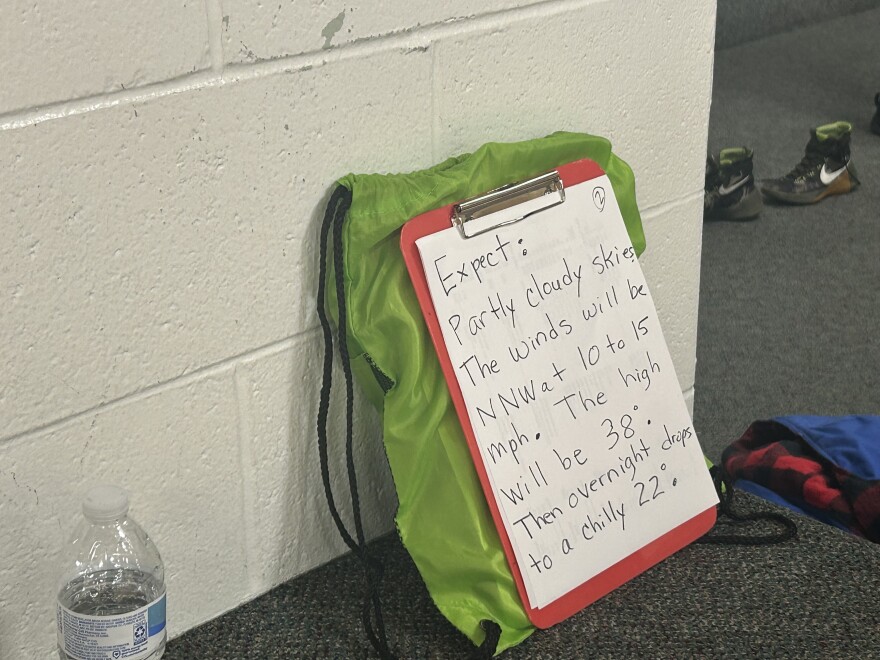 2
Expect:
Partly cloudy skies
The winds will be
NNW at 10 to 15
mph. The high
will be 38°.
Then overnight drops
to a chilly 22°.